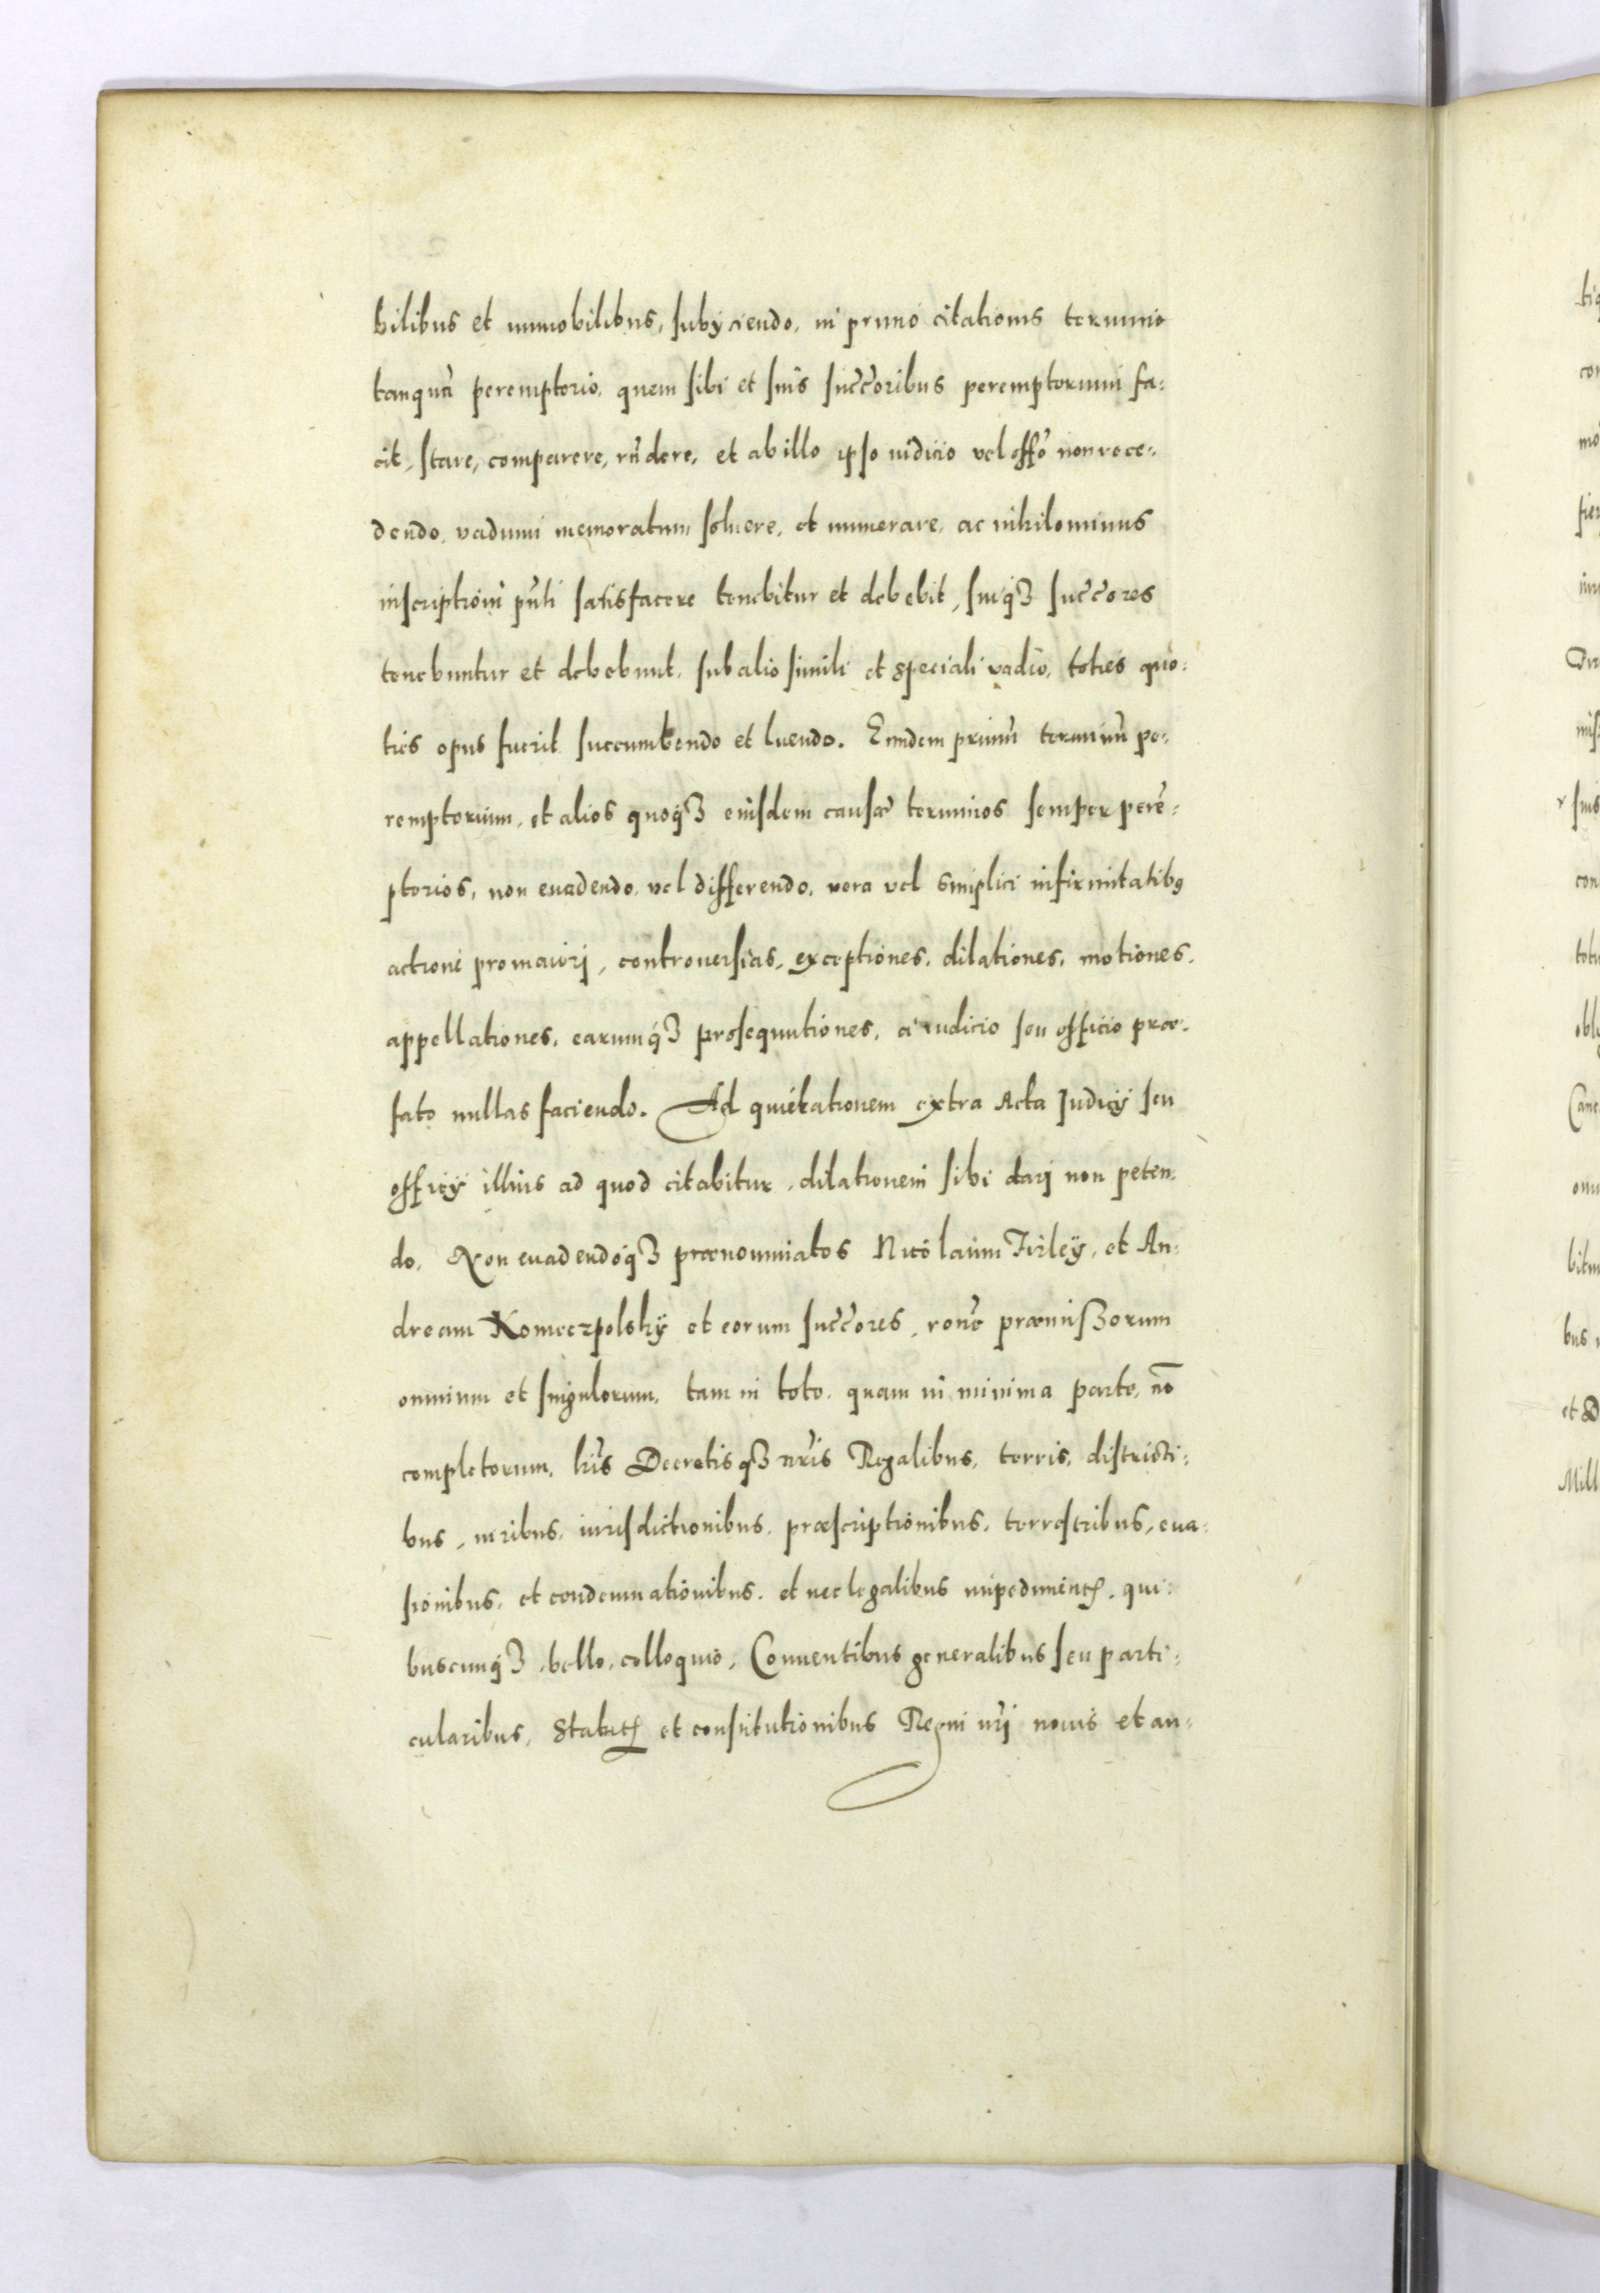 bilibus et immobilibus, subÿciendo, in primo citationis termino
tanquã peremptorio, quem sibi et suis succ̃oribus peremptorium fa=
cit, stare, comparere, rñdere, et ab illo ipso iudicio vel offõ non rece=
dendo, vadium memoratum soluere, et numerare, ac nihilominus
inscriptioni pñti satisfacere tenebitur et debebit, suiq́ꝫ succ̃ores
tenebuntur et debebunt, sub alio simili et speciali vadio, toties quo=
ties opus fuerit succumbendo et luendo. Eundem primũ terminũ pe=
remptorium, et alios quoq́ꝫ eiusdem causæ terminos semper perẽ=
ptorios, non euadendo vel differendo, vera vel simplici infirmitatibꝰ
actione pro maiori, controuersias, exceptiones, dilationes, motiones,
appellationes, earumq́ꝫ prosequutiones, a iudicio seu officio præ=
fato nullas faciendo. Ad quietationem extra Acta Judicÿ seu
officÿ illius ad quod citabitur, dilationem sibi darj non peten=
do. Non euadendoq́ꝫ prænominatos Nicolaum Firleÿ, et An=
dream Konieczpolskÿ et eorum succ̃ores, rõne præmißorum
omnium et singulorum, tam in toto, quam in minima parte, nõ
completorum, lr̃is Decretisqꝫ nr̃is Regalibus, terris, districti=
bus, iuribus, iurisdictionibus, præscriptionibus, terrestribus, eua=
sionibus, et condemnationibus, et nec legalibus impedimentꝭ, qui=
buscunq́ꝫ, bello, colloquio, Conuentibus generalibus seu parti=
cularibus, Statutꝭ et constitutionibus Regni nr̃j nouis et an=